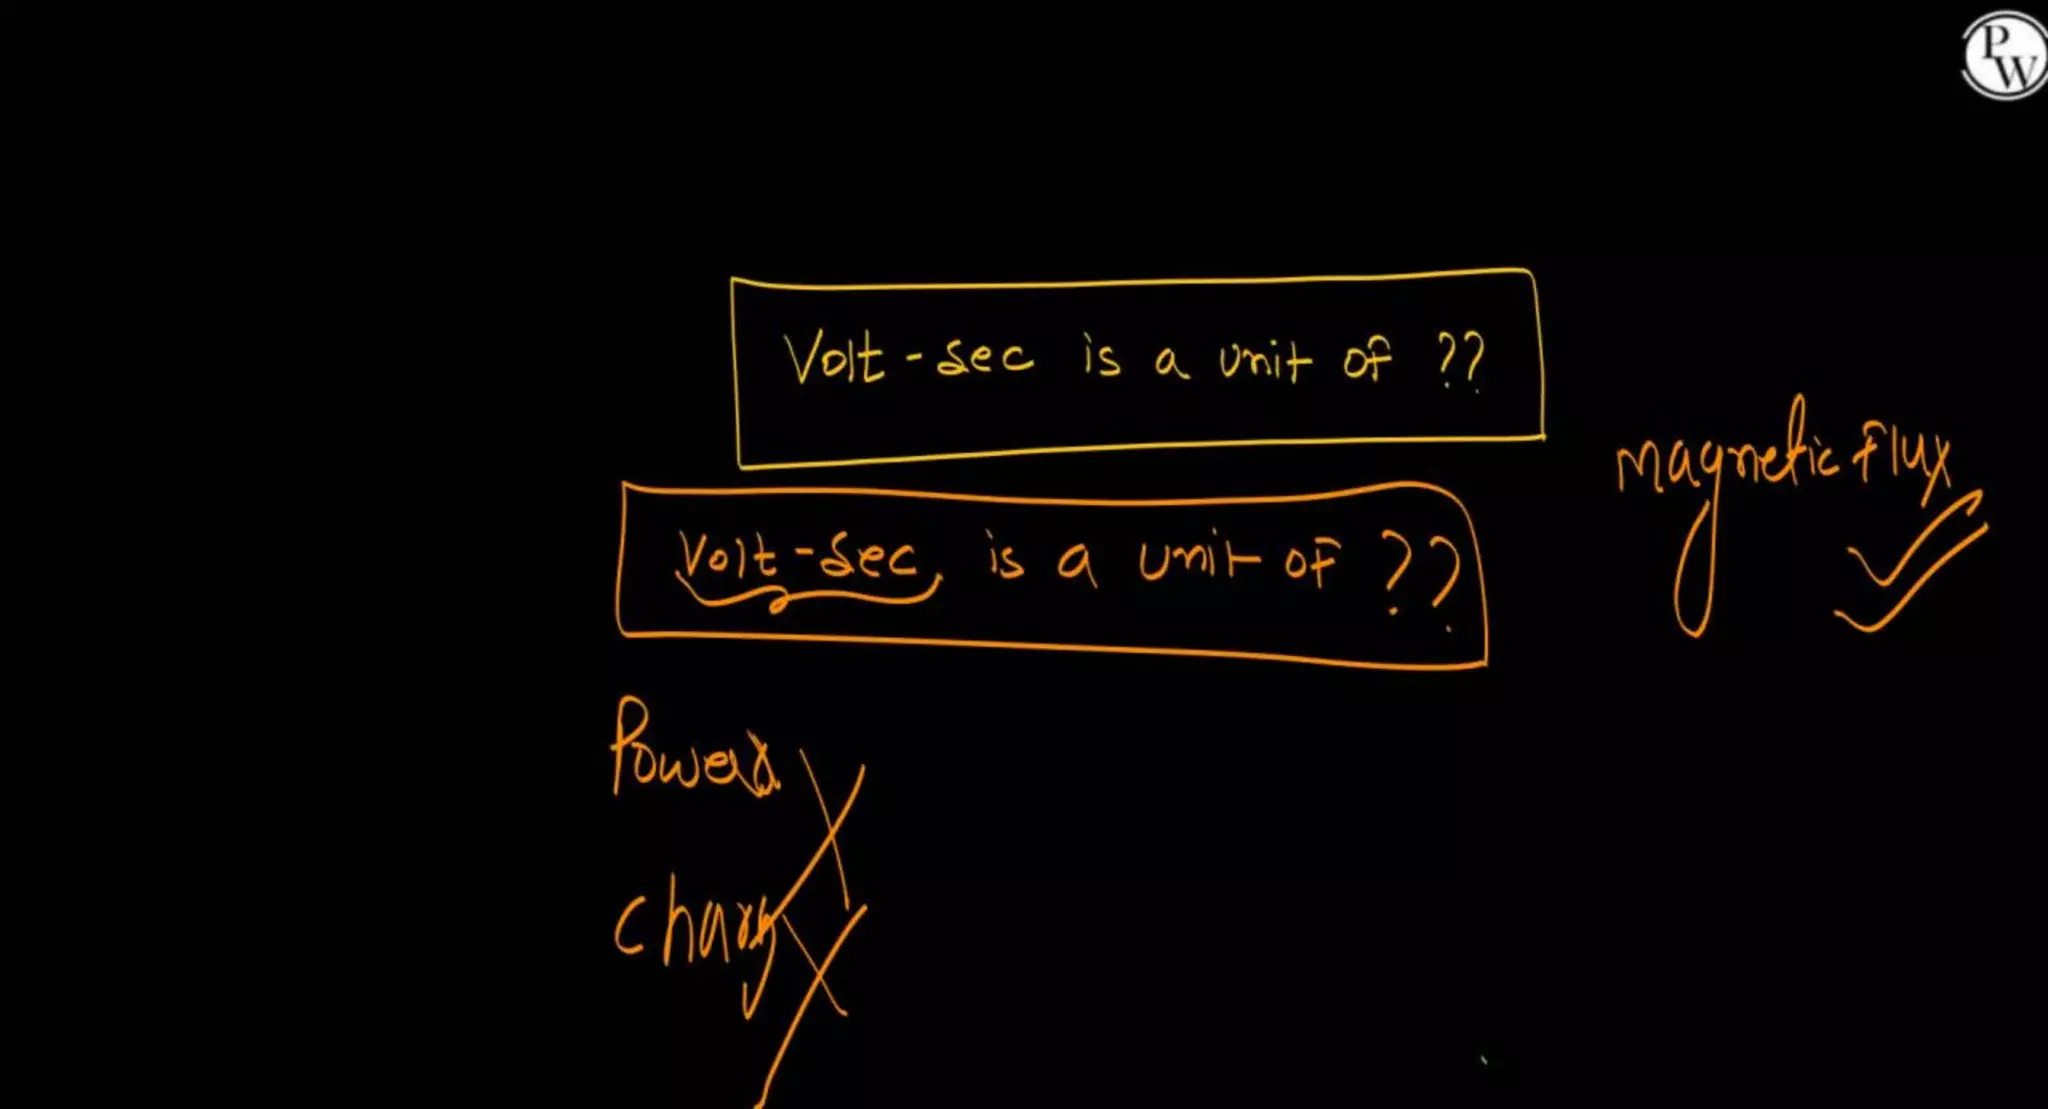 PW
Volt-sec is a unit of ??
Magnetic flux
Volt-sec is a unit of ??
Power
Charg